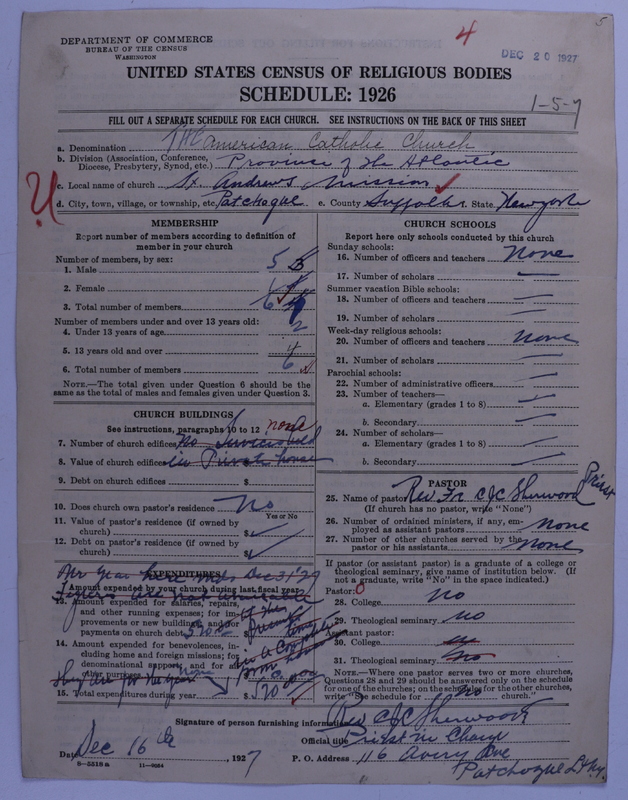 5
4
DEPARTMENT OF COMMERCE
BUREAU OF THE CENSUS
WASHINGTON
DEC 20 1927
UNITED STATES CENSUS OF RELIGIOUS BODIES
SCHEDULE: 1926
1-5-7
FILL OUT A SEPARATE SCHEDULE FOR EACH CHURCH. SEE INSTRUCTIONS ON THE BACK OF THIS SHEET
a. Denomination The American Catholic Church
b. Division (Association, Conference, Diocese, Presbytery, Synod, etc.) Province of the Atlantic
c. Local name of church St. Andrews Mission
d. City, town, village, or township, etc. Patchogue e. County Suffolk f. State New York
MEMBERSHIP
Report number of members according to definition of
member in your church
Number of members, by sex:
1. Male 5
2. Female
3. Total number of members 6
Number of members under and over 13 years old:
4. Under 13 years of age 2
5. 13 years old and over 4
6. Total number of members 6
NOTE.—The total given under Question 6 should be the
same as the total of males and females given under Question 3.
CHURCH BUILDINGS
See instructions, paragraphs 10 to 12 none
7. Number of church edifices No Services held
8. Value of church edifices in Private house
9. Debt on church edifices $
10. Does church own pastor's residence? No
Yes or No
11. Value of pastor's residence (if owned by
church) $
12. Debt on pastor's residence (if owned by
church) $
EXPENDITURES
Year Dec 31
Amount expended by church during last fiscal year
are not
13. Amount expended for salaries, repairs,
and other running expenses; for im-
provements or new buildings; and for
payments on church debt
14. Amount expended for benevolences, in-
cluding home and foreign missions; for
denominational support; and for all
other purposes none
for the year
15. Total expenditures during year $
CHURCH SCHOOLS
Report here only schools conducted by this church
Sunday schools:
16. Number of officers and teachers None
17. Number of scholars —
Summer vacation Bible schools:
18. Number of officers and teachers —
19. Number of scholars —
Week-day religious schools:
20. Number of officers and teachers None
21. Number of scholars —
Parochial schools:
22. Number of administrative officers —
23. Number of teachers—
a. Elementary (grades 1 to 8) —
b. Secondary —
24. Number of scholars—
a. Elementary (grades 1 to 8) —
b. Secondary —
PASTOR
25. Name of pastor Rev Fr. C J C Sherwood Priest
(If church has no pastor, write "None")
26. Number of ordained ministers, if any, em-
ployed as assistant pastors none
27. Number of other churches served by the
pastor or his assistants None
If pastor (or assistant pastor) is a graduate of a college or
theological seminary, give name of institution below. (If
not a graduate, write "No" in the space indicated.)
Pastor: 0
28. College No
29. Theological seminary No
Assistant pastor:
30. College no
31. Theological seminary No
NOTE.—Where one pastor serves two or more churches,
Questions 28 and 29 should be answered only on the schedule
for one of the churches; on the schedules for the other churches,
write "See schedule for no church."
Signature of person furnishing information Rev C J C Sherwood
Official title Priest in Charge
Date Dec 16th, 1927 P. O. Address 116 Avery Ave
Patchogue L.I. N.Y.
8-5518a 11-9084